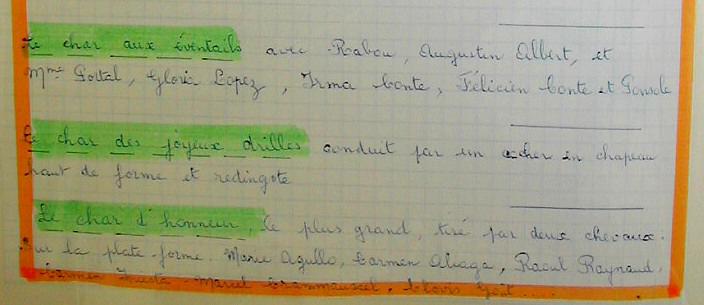 Le char aux éventails avec Rabou, Augustin Albert, et
Mme Portal, Gloria Lopez, Irma Conte, Félicien Conte et
Le char des joyeux drilles conduit par un cocher en chapeau
haut de forme et redingote
Le char d'honneur, le plus grand, tiré par deux chevaux.
Sur la plate-forme: Marie Agullo, Carmen Aliaga, Raoul Raynaud,
Carmen Marcel